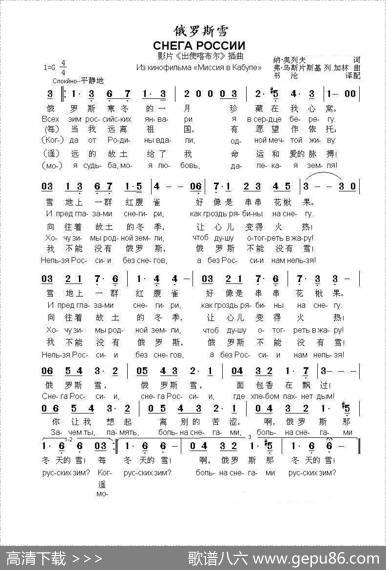 俄罗斯雪
СНЕГА РОССИИ
影片《出使喀布尔》插曲
Из кинофильма «Миссия в Кабуле»
1=G 4/4
Спокйно–平静地
纳·奥列夫 词
弗·乌斯片斯基 列.加林 曲
书 沦 译配
俄 罗 斯 寒 冬 的 一 月 珍 藏 在 我 心 窝。
Всех зим российских январи я в сердце берегу.
(每) 当 我 远 离 祖 国, 有 愿 望 作 依 托:
(Ког-) да от Родины вдали, одной мечтой живу
(遥) 远 的 故 土 给 了 我 命 运 和 爱 的 脉 搏!
(мо-) я судьба, моя любовь, далекая земля!
雪 地 上 一 群 红 腹 雀 好 像 是 串 串 花 楸 果。
И пред глазами снегири, как гроздь рябины на снегу.
向 往 着 故 土 的 冬 季, 让 心 儿 变 得 火 热!
Хочу зимы родной земли, чтоб душу отогреть в жару!
我 不 能 没 有 俄 罗 斯, 俄 罗 斯 不 能 没 有 雪!
Нельзя России без снегов, а без России нам нельзя!
雪 地 上 一 群 红 腹 雀 好 像 是 串 串 花 楸 果。
И пред глазами снегири, как гроздь рябины на снегу.
向 往 着 故 土 的 冬 季, 让 心 儿 变 得 火 热!
Хочу зимы родной земли, чтоб душу отогреть в жару!
我 不 能 没 有 俄 罗 斯, 俄 罗 斯 不 能 没 有 雪!
Нельзя России без снегов, а без России нам нельзя!
俄 罗 斯 雪, 俄 罗 斯 雪, 面 包 香 在 飘 过!
Снега России, снега России, где хлебом пахнет дым!
你 让 我 想 起 离 别 的 苦 涩, 啊, 俄 罗 斯 那
Зачем ты, память, больна снегами, больна снегами
冬 天 的 雪! 每 冬 天 的 雪! 啊, 俄 罗 斯 那 冬 天 的 雪!
русских зим? Ког- русских зим? больна снегами русских зим?
遥
мо-
高清下载 >>>>
歌谱八六 www.gepu86.com